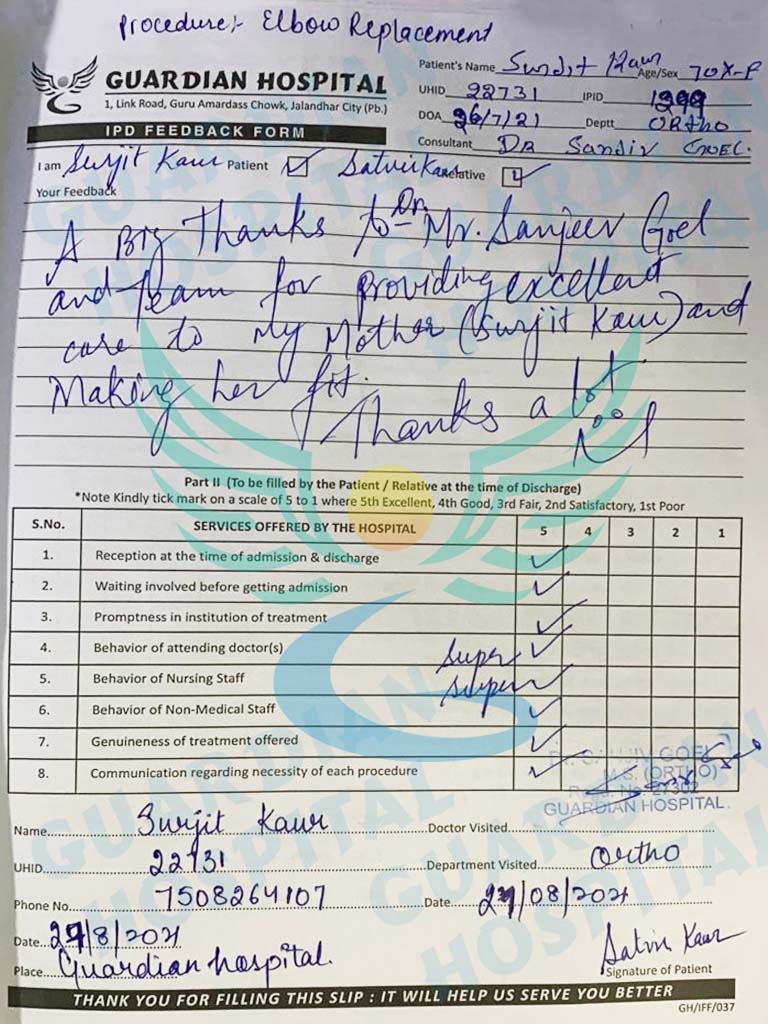 Procedure:- Elbow Replacement
GUARDIAN HOSPITAL
1, Link Road, Guru Amardass Chowk, Jalandhar City (Pb.)
IPD FEEDBACK FORM
Patient's Name Surjit Kaur Age/Sex 70Y-F
UHID 22731 IPID 1299
DOA 26/7/21 Deptt ORTHO
Consultant DR Sandiv GOEL.
I am Surjit Kaur Patient Satvir Kaur Relative
Your Feedback
A Big Thanks to Dr. Mr. Sanjeev Goel
and team for providing excellent
care to my Mother (Surjit Kaur) and
Making her fit.
Thanks a lot
Part II (To be filled by the Patient / Relative at the time of Discharge)
*Note Kindly tick mark on a scale of 5 to 1 where 5th Excellent, 4th Good, 3rd Fair, 2nd Satisfactory, 1st Poor
S.No. SERVICES OFFERED BY THE HOSPITAL 5 4 3 2 1
1. Reception at the time of admission & discharge
2. Waiting involved before getting admission
3. Promptness in institution of treatment
4. Behavior of attending doctor(s) super
5. Behavior of Nursing Staff super
6. Behavior of Non-Medical Staff
7. Genuineness of treatment offered
8. Communication regarding necessity of each procedure
GOEL
M.S. (ORTHO)
27302
GUARDIAN HOSPITAL
Name Surjit Kaur Doctor Visited
UHID 22731 Department Visited Ortho
Phone No. 7508264107 Date 27/08/2021
Date 27/8/2021
Place Guardian hospital.
Satvir Kaur
Signature of Patient
THANK YOU FOR FILLING THIS SLIP : IT WILL HELP US SERVE YOU BETTER
GH/IFF/037